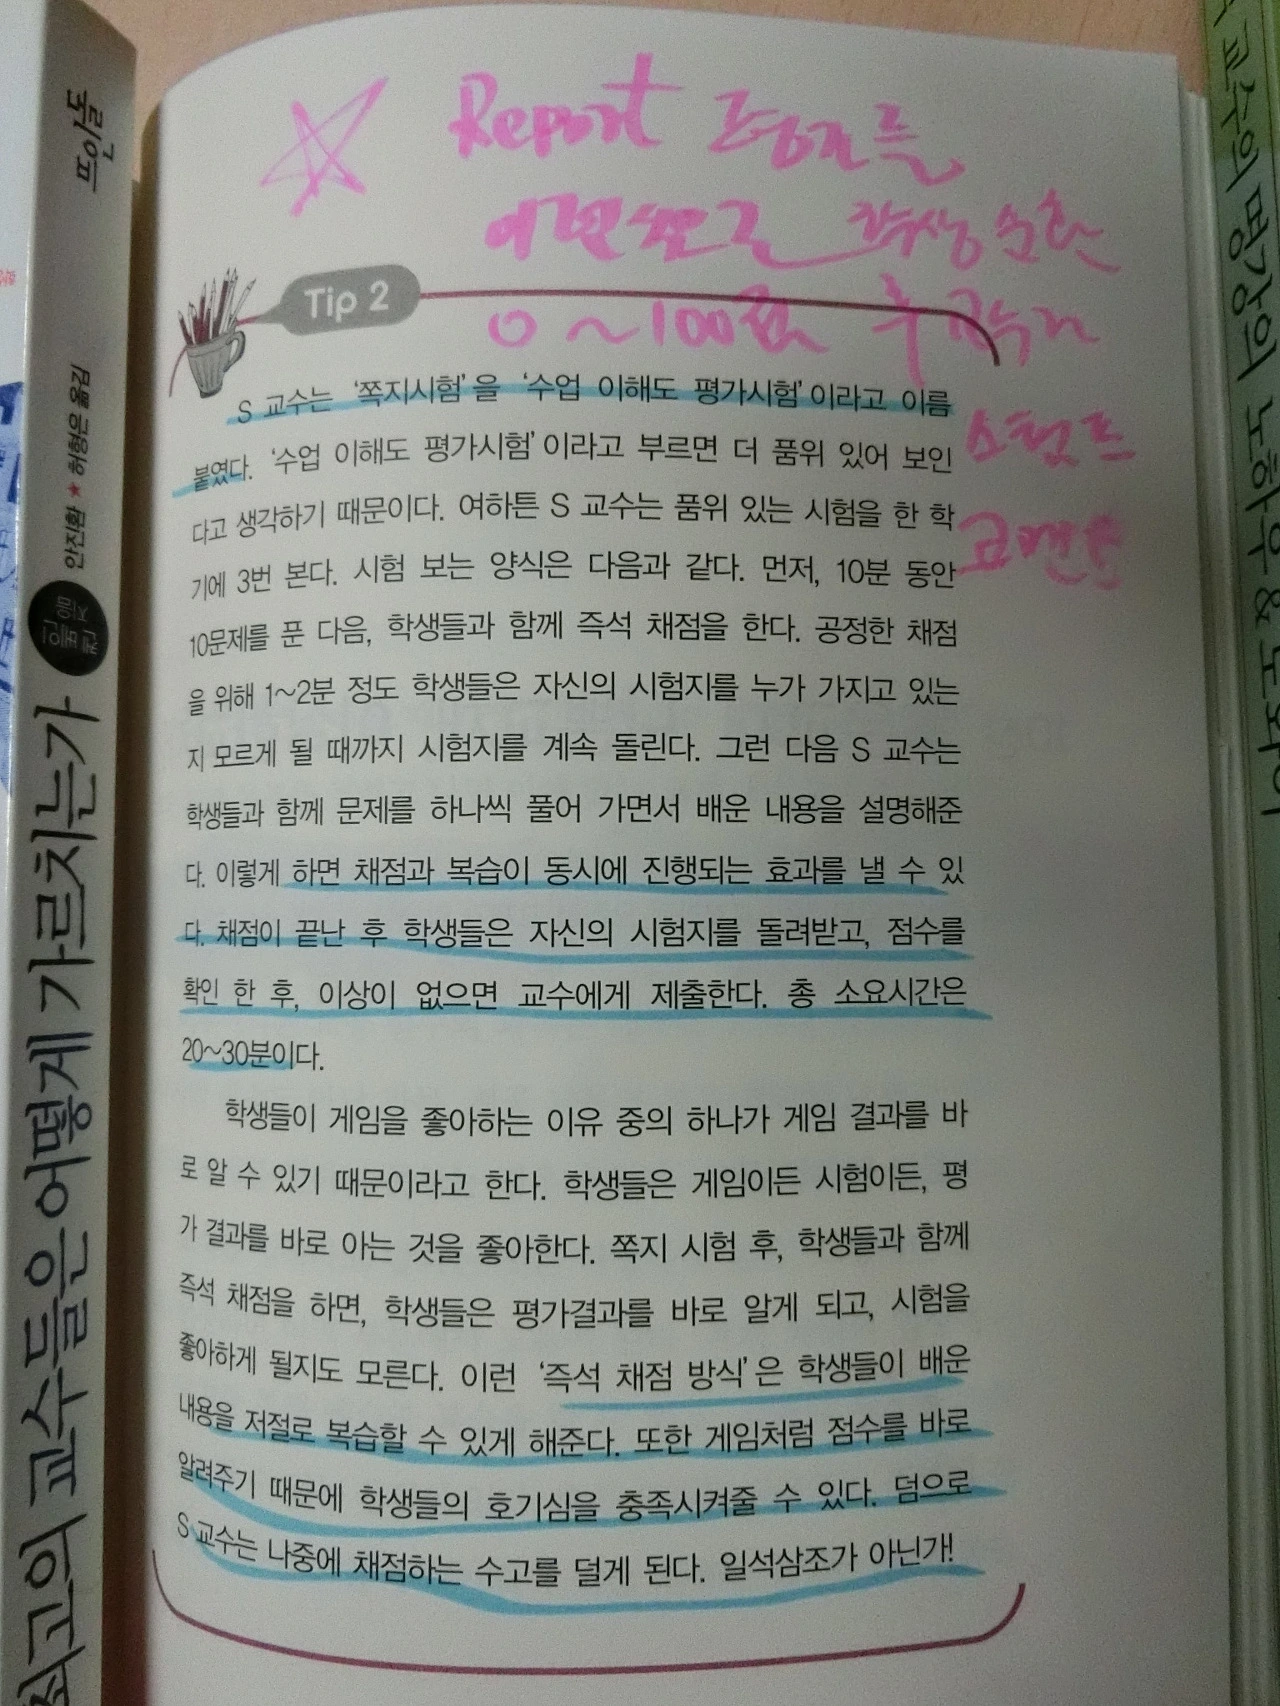 Report
0~100점 후
스탬프
코멘트
Tip 2
S 교수는 '쪽지시험'을 '수업 이해도 평가시험'이라고 이름
붙였다. '수업 이해도 평가시험'이라고 부르면 더 품위 있어 보인
다고 생각하기 때문이다. 여하튼 S 교수는 품위 있는 시험을 한 학
기에 3번 본다. 시험 보는 양식은 다음과 같다. 먼저, 10분 동안
10문제를 푼 다음, 학생들과 함께 즉석 채점을 한다. 공정한 채점
을 위해 1~2분 정도 학생들은 자신의 시험지를 누가 가지고 있는
지 모르게 될 때까지 시험지를 계속 돌린다. 그런 다음 S 교수는
학생들과 함께 문제를 하나씩 풀어 가면서 배운 내용을 설명해준
다. 이렇게 하면 채점과 복습이 동시에 진행되는 효과를 낼 수 있
다. 채점이 끝난 후 학생들은 자신의 시험지를 돌려받고, 점수를
확인 한 후, 이상이 없으면 교수에게 제출한다. 총 소요시간은
20~30분이다.
학생들이 게임을 좋아하는 이유 중의 하나가 게임 결과를 바
로 알 수 있기 때문이라고 한다. 학생들은 게임이든 시험이든, 평
가 결과를 바로 아는 것을 좋아한다. 쪽지 시험 후, 학생들과 함께
즉석 채점을 하면, 학생들은 평가결과를 바로 알게 되고, 시험을
좋아하게 될지도 모른다. 이런 '즉석 채점 방식'은 학생들이 배운
내용을 저절로 복습할 수 있게 해준다. 또한 게임처럼 점수를 바로
알려주기 때문에 학생들의 호기심을 충족시켜줄 수 있다. 덤으로
S 교수는 나중에 채점하는 수고를 덜게 된다. 일석삼조가 아닌가!
최고의 교수들은 어떻게 가르치는가
안진환 ★ 허형은 옮김
뜨인돌
교수의 명강의 노하우 & 노와이